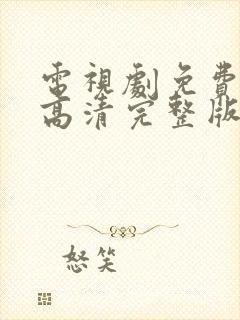 電視劇免費
高清完整版
怒笑